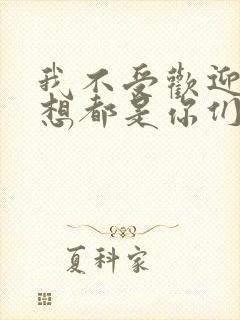 我不受歡迎
想都是你们
夏科家